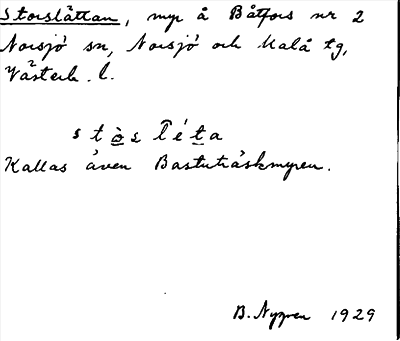 Storslåttan, myr å Båtfors nr 2
Norsjö sn, Norsjö och Malå tg,
Västerb. l.
Kallas även Bastuträskmyren.
B. Nygren 1929